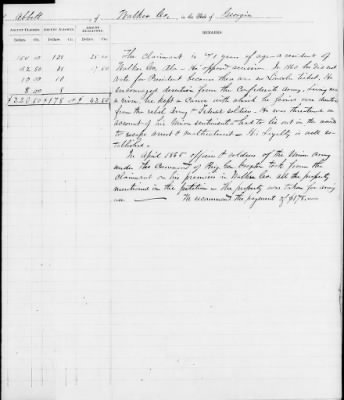 Abbott of Walker Co. in the State of Georgia
AMOUNT CLAIMED. AMOUNT ALLOWED. AMOUNT DISALLOWED. REMARKS.
Dolls. Cts. Dolls. Cts. Dolls. Cts.
150 00 125 25 00 The Claimant is 71 years of age a resident of
52 50 17 50 Walker Co, Ala - He opposed secession. In 1860 he did not
10 00 10 vote for President because there was no Lincoln ticket. He
8 00 8 encouraged desertion from the Confederate Army. Living near
$220 50 $178 00 $42 50 a river, he kept a canoe with which he
from the rebel Army & Federal soldiers. He was threatened on
account of his Union sentiments & had to lie out in the woods
to escape arrest & maltreatment. His Loyalty is well es-
tablished.
In April 1865 officers & soldiers of the Union Army
under the Command of took from the
claimant on his premises in Walker Co. all the property
mentioned in the petition & the property was taken for army
use. We recommend the payment of $178.00